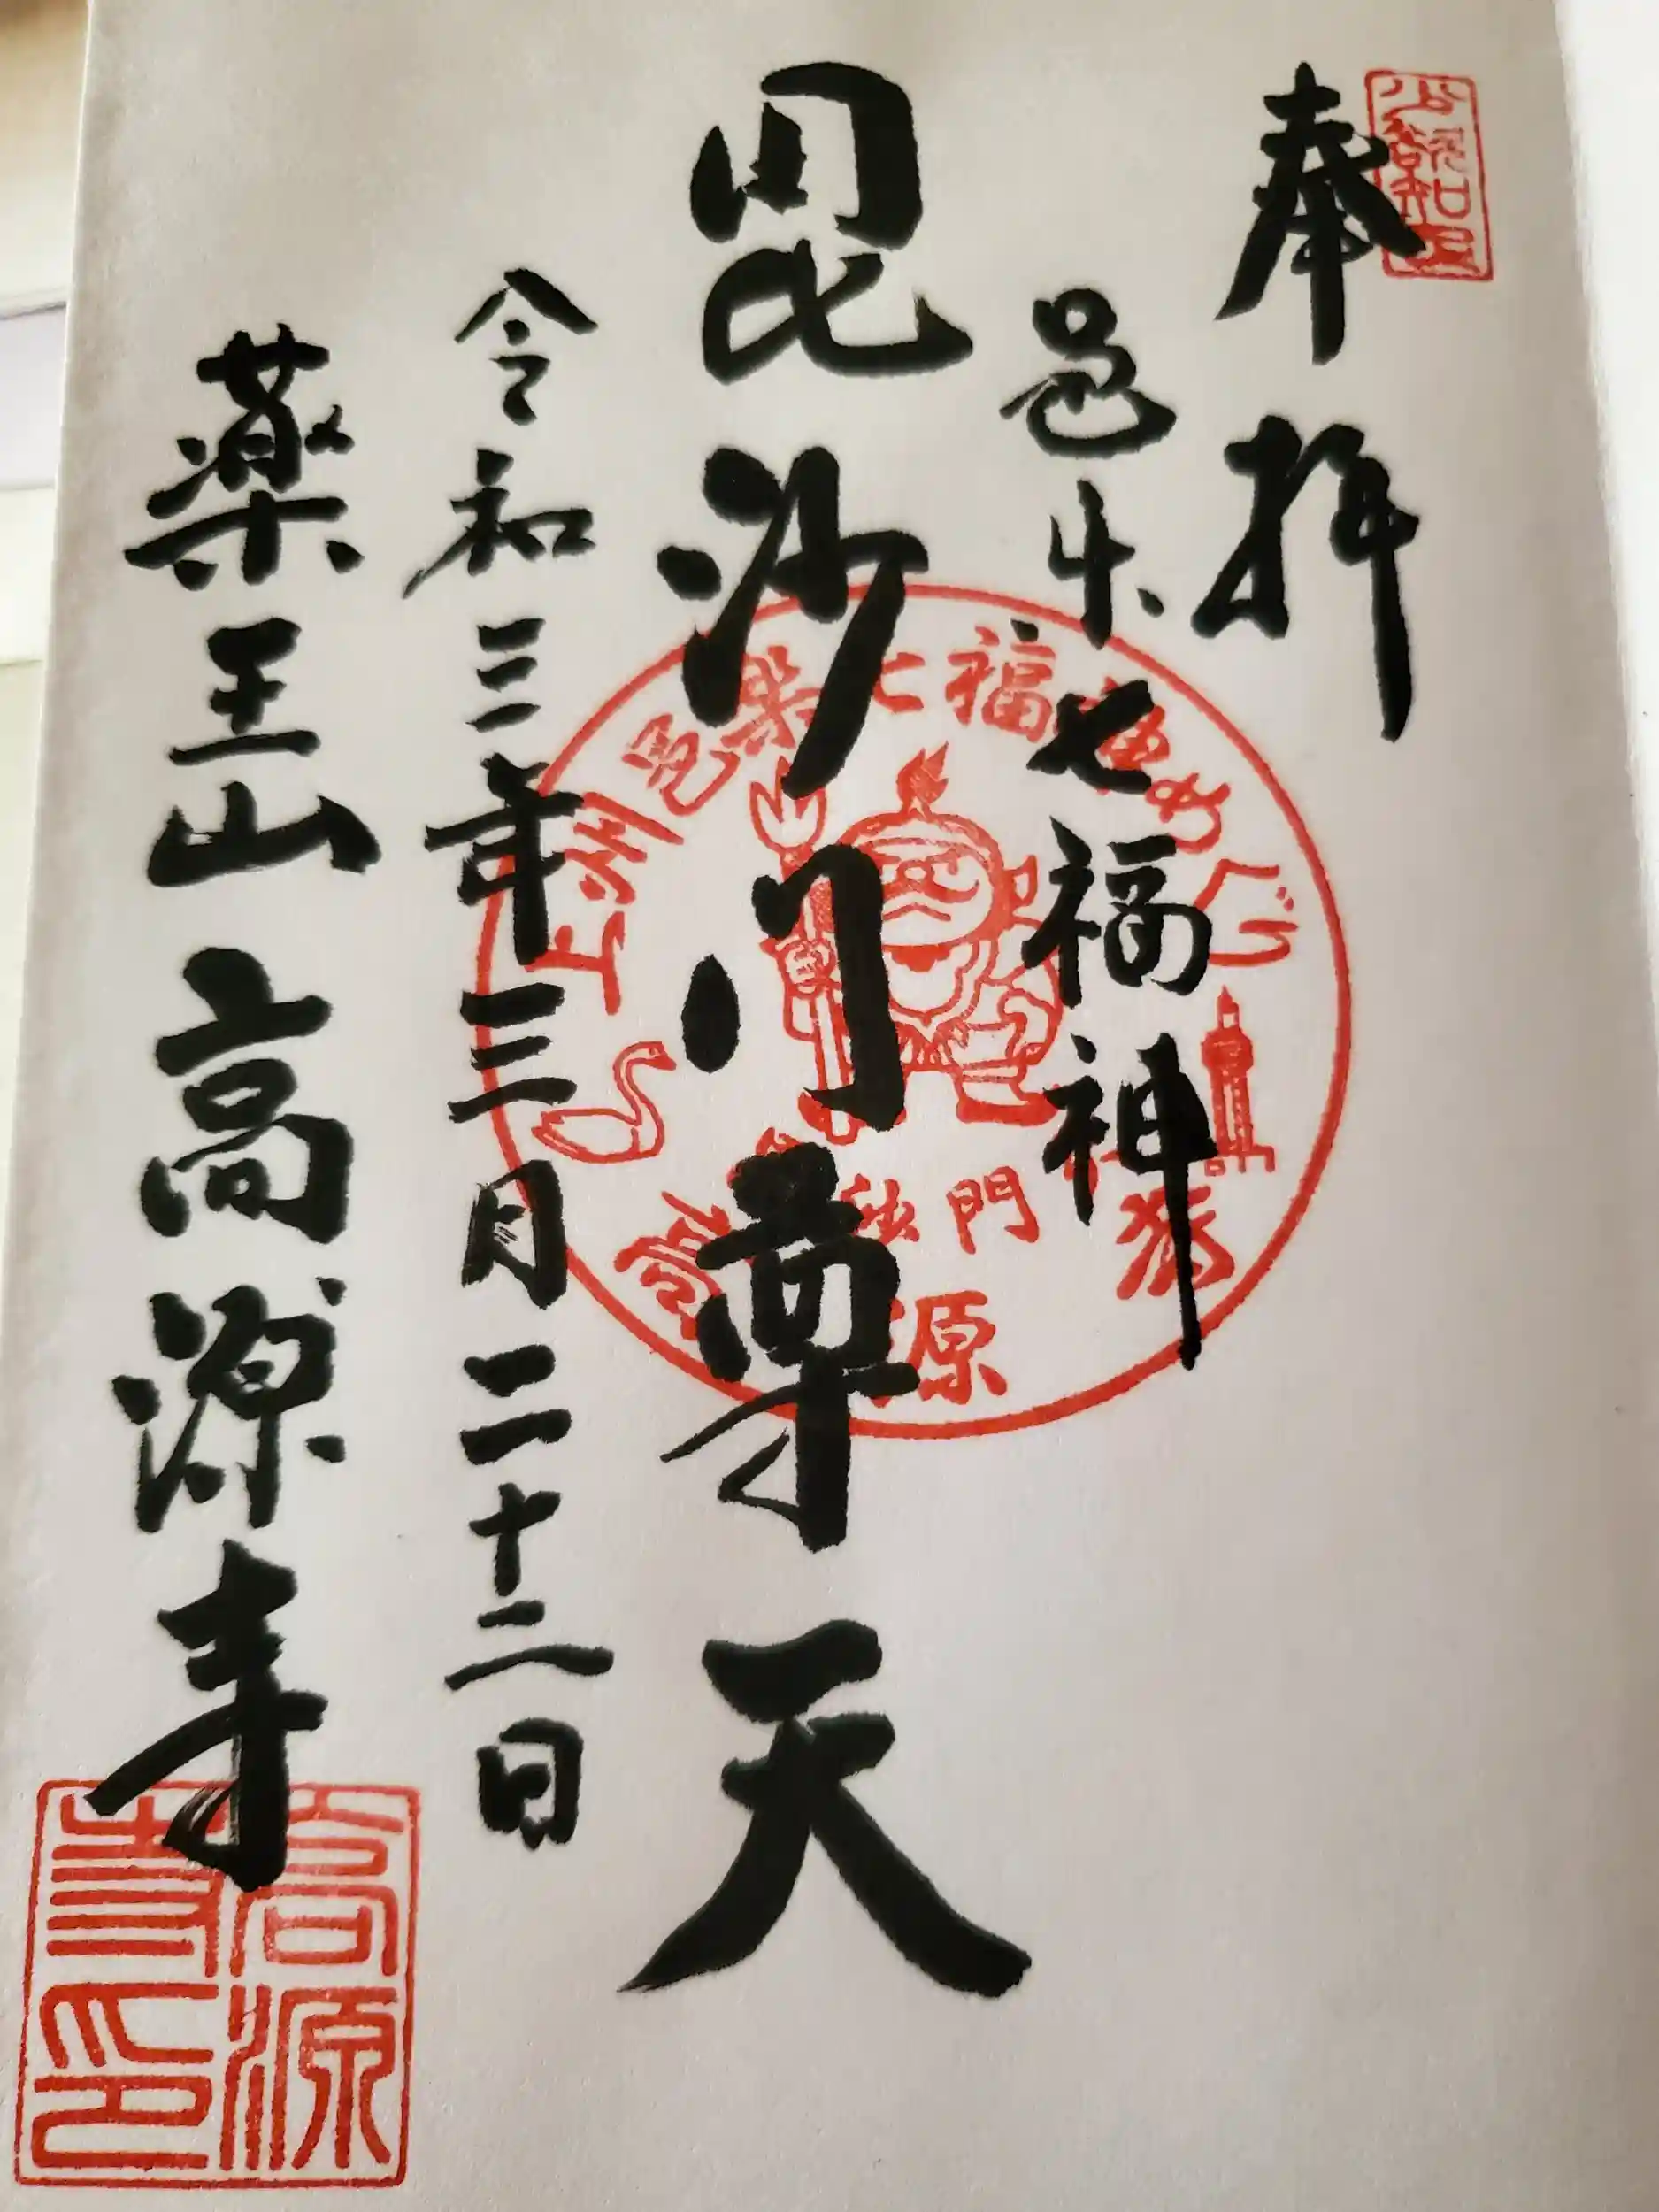 奉拝
邑楽七福神
毘沙門尊天
令和三年三月二十二日
薬王山 高源寺
上州邑楽七福神めぐり
門
高源寺印